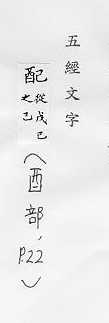 五經文字
配從戊己
之己
(酉部,
P.22)